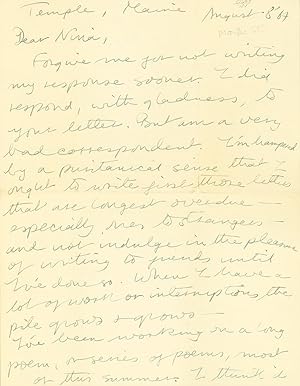 Temple, Maine
August 8 '67
Dear Nina,
Forgive me for not writing
my response sooner. I did
respond, with gladness, to
your letter. But am a very
bad correspondent. I'm hampered
by a puritanical sense that I
ought to write first those letters
that are longest overdue —
especially ones to strangers —
and not indulge in the pleasure
of writing to friends until
I've done so. When I have a
lot of work or interruptions, the
pile grows & grows —
I've been working on a long
poem, or series of poems, most
of this summer. I think it